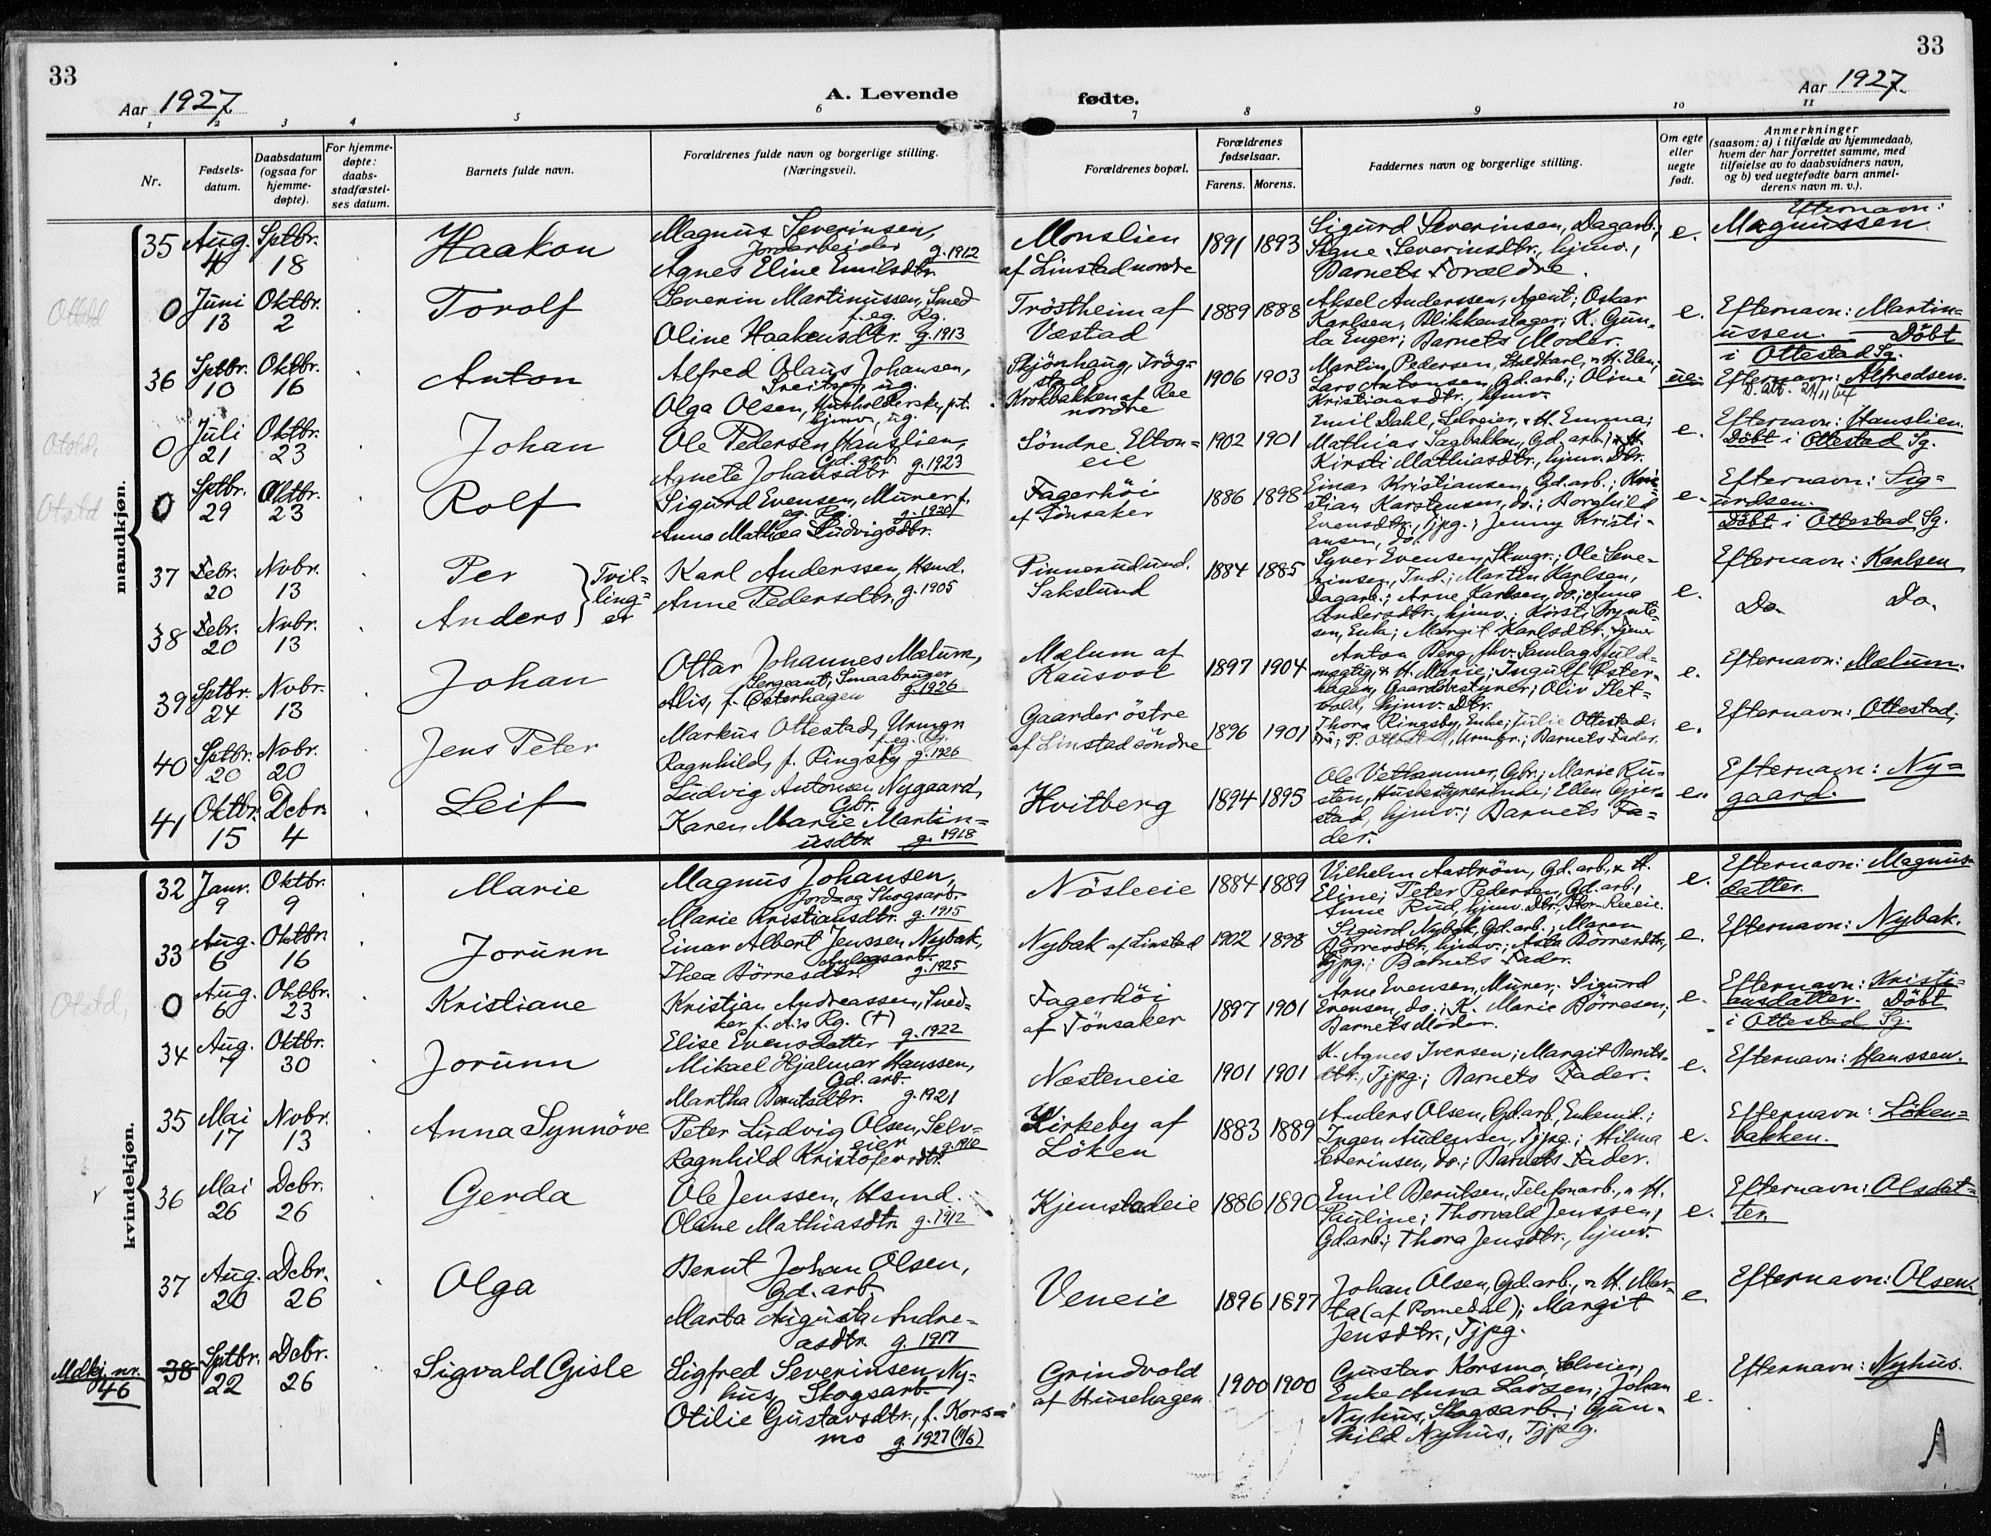 33
33
Aar 1927
A. Levende
fødte.
Aar 1927.
1 2 3 4 5 6 7 8 9 10 11
Nr.
Fødsels-
datum.
Daabsdatum
(ogsaa for
hjemme-
døpte).
For hjemme-
døpte:
daabs-
stadfæstel-
ses datum.
Barnets fulde navn.
Forældrenes fulde navn og borgerlige stilling.
(Næringsvei).
Forældrenes bopæl.
Forældrenes
fødselsaar.
Farens. Morens.
Faddernes navn og borgerlige stilling.
Om egte
eller
uegte
født.
Anmerkninger
(saasom: a) i tilfælde av hjemmedaab,
hvem der har forrettet samme, med
tilføielse av to daabsvidners navn,
og b) ved uegtefødte barn anmel-
derens navn m. v.).
mandkjøn.
35 Aug. 4 Sptbr. 18
Haakon
Magnus Severinsen,
Jordarbeider g. 1912
Agnes Eline Emilsdtr.
Monslien
af Linstad nordre
1891 1893
Sigurd Severinsen, Dagarb.,
Signe Severinsdtr., hjmv.,
Barnets Forældre.
e.
Efternavn:
Magnussen.
Ottstd
0 Juni 13 Oktbr. 2
Torolf
Severin Martinussen, Smed
f. eg. Rg.
Oline Haakensdtr. g. 1913
Tröstheim af
Vestad
1889 1888
Aksel Anderssen, Agent; Oskar
Karlsen, Blikkenslager; K. Gun-
da Enger; Barnets Moder.
e.
Efternavn: Martin-
ussen. Döbt
i Ottestad Sg.
36 Sptbr. 10 Oktbr. 16
Anton
Alfred Olaus Johansen,
Sveitser, ug.
Olga Olsen, Husholderske, p.t.
hjmv., ug.
Skjönhaug, Trög-
stad
Krokbakken af Ree
nordre
1906 1903
Martin Pedersen, Stedkarl, & H. Elen;
Lars Antonsen, Gd. arb.; Oline
Kristiansdtr., hjmv.
ue.
Efternavn: Alfredsen.
Otstd,
0 Juli 21 Oktbr. 23
Johan
Ole Pedersen Hanslien,
Gd. arb.
Agnete Johansdtr. g. 1923
Söndre Elton-
eie
1902 1901
Emil Dahl, Selveier, & H. Emma;
Mathias Sagbakken, Gd. arb., & H.
Kirsti Mathiasdtr., hjmv. Dtr.
e.
Efternavn: Hanslien.
Döbt i Ottestad Sg.
Otstd
0 Sptbr. 29 Oktbr. 23
Rolf
Sigurd Evensen, Murer f.
eg. Rg. g. 1920
Anna Mathea Ludvigsdtr.
Fagerhöi
af Tönsaker
1886 1898
Einar Kristiansen, Gd. arb.; Kri-
stian Karstensen, do.; Borghild
Evensdtr., Tjpg.; Jenny Kristi-
ansen, do.
e.
Efternavn: Sig-
urdsen.
Döbt i Ottestad Sg.
37 Febr. 20 Novbr. 13
Per
Tvil-
ling-
er
Karl Anderssen, Hsmd.
Anne Pedersdtr. g. 1905
Pinnerudund.
Sakslund
1884 1885
Syver Evensen, Skmgr.; Ole Seve-
rinsen, Ind.; Martin Karlsen,
Dagarb.; Arne Karlsen, do.; Anna
Andersdtr., hjmv.; Kirsti Brynte-
sen, Enke; Margit Karlsdtr., Tjener
e.
Efternavn: Karlsen
38 Febr. 20 Novbr. 13
Anders
Do. Do.
39 Sptbr. 24 Novbr. 13
Johan
Ottar Johannes Mælum,
Sergeant, Smaabruger
Alis, f. Österhagen g. 1926
Mælum af
Rausvol
1897 1904
Anton Berg, fhv. Samlagsfuld-
mægtig & H. Marie; Ingulf Öster-
hagen, Gaardbestyrer; Oliv Slet-
vold, hjmv. Dtr.
e.
Efternavn: Mælum.
40 Sptbr. 20 Novbr. 20
Jens Peter
Markus Ottestad, Urmgr.
f. eg. Rg.
Ragnhild, f. Ringsby g. 1926
Gaarder östre
af Linstad söndre
1896 1901
Thora Ringsby, Enke; Julie Ottestad,
Frk; P. Ottestad, Urmgr.; Barnets Fader.
e.
Efternavn: Ottestad.
41 Oktbr. 15 Dcbr. 4
Leif
Ludvig Antonsen Nygaard,
Gbr.
Karen Marie Martin-
usdtr. g. 1918
Hvitberg
1894 1895
Ole Vethammer, Gbr.; Marie Ru-
sten, Husbestyrerinde; Ellen Gjer-
stad, hjmv.; Barnets Fa-
der.
e.
Efternavn: Ny-
gaard.
kvindekjøn.
32 Janr. 9 Oktbr. 9
Marie
Magnus Johansen,
Jord- og Skogsarb.
Marie Kristiansdtr. g. 1915
Nösleeie
1884 1889
Vilhelm Aaström, Gd. arb., & H.
Eline; Peter Pedersen, Gd. arb.,
Anne Rud, hjmv. Dtr., Stor-Reeeie.
e.
Efternavn: Magnus-
datter.
33 Aug. 6 Oktbr. 16
Jorunn
Einar Albert Jenssen Nybak,
Anlægsarb.
Thea Börresdtr. g. 1925
Nybak af Linstad
1902 1898
Sigurd Nybak, Gd. arb.; Maren
Börresdtr., hjmv.; Asta Börresdtr.,
Tjpg.; Barnets Fader.
e.
Efternavn: Nybak.
Otstd,
0 Aug. 6 Oktbr. 23
Kristiane
Kristian Andreassen, Sned-
ker f. A's Rg. (+)
Elise Evensdatter g. 1922
Fagerhöi
af Tönsaker
1897 1901
Arne Evensen, Murer; Sigurd
Evensen, do.; K. Marie Börresen;
Barnets Moder.
e.
Efternavn: Kristi-
ansdatter. Döbt
i Ottestad Sg.
34 Aug. 7 Oktbr. 30
Jorunn
Mikael Hjalmar Hanssen,
Gd. arb.
Martha Berntsdtr. g. 1921
Næsteneie
1901 1901
K. Agnes Iversen; Margit Bernts-
dtr., Tjpg.; Barnets Fader.
e.
Efternavn: Hanssen.
35 Mai 17 Novbr. 13
Anna Synnöve
Peter Ludvig Olsen, Selv-
eier g. 1910
Ragnhild Kristofersdtr.
Kirkeby af
Löken
1883 1889
Anders Olsen, Gd. arb., Enkem.;
Inger Andersen, Tjpg.; Hilma
Severinsen, do.; Barnets Fader.
e.
Efternavn: Löken-
bakken.
36 Mai 26 Dcbr. 26
Gerda
Ole Jenssen, Hsmd.
Oline Mathiasdtr. g. 1912
Kjemstadeie
1886 1890
Emil Berntsen, Telefonarb., & H.
Pauline; Thorvald Jenssen,
Gd. arb.; Thora Jensdtr., hjmv.
e.
Efternavn: Olsdat-
ter.
37 Aug. 20 Dcbr. 26
Olga
Bernt Johan Olsen,
Gd. arb.
Marta Augusta Andre-
asdtr. g. 1917
Veneie
1896 1897
Johan Olsen, Gd. arb., & H. Mar-
ta (af Romedal); Margit
Jensdtr., Tjpg.
e.
Efternavn: Olsen.
Mdkj. nr.
46
38 Sptbr. 22 Dcbr. 26
Sigvald Gisle
Sigfred Severinsen Ny-
hus, Skogsarb.
Otilie Gustavsdtr., f. Kors-
mo g. 1927 (11/6)
Grindvold
af Husehagen
1900 1900
Gustav Korsmo, Selveier;
Enke Anna Larsen; Johan
Nyhus, Skogsarb.; Gun-
hild Nyhus, Tjpg.
e.
Efternavn: Nyhus.
A